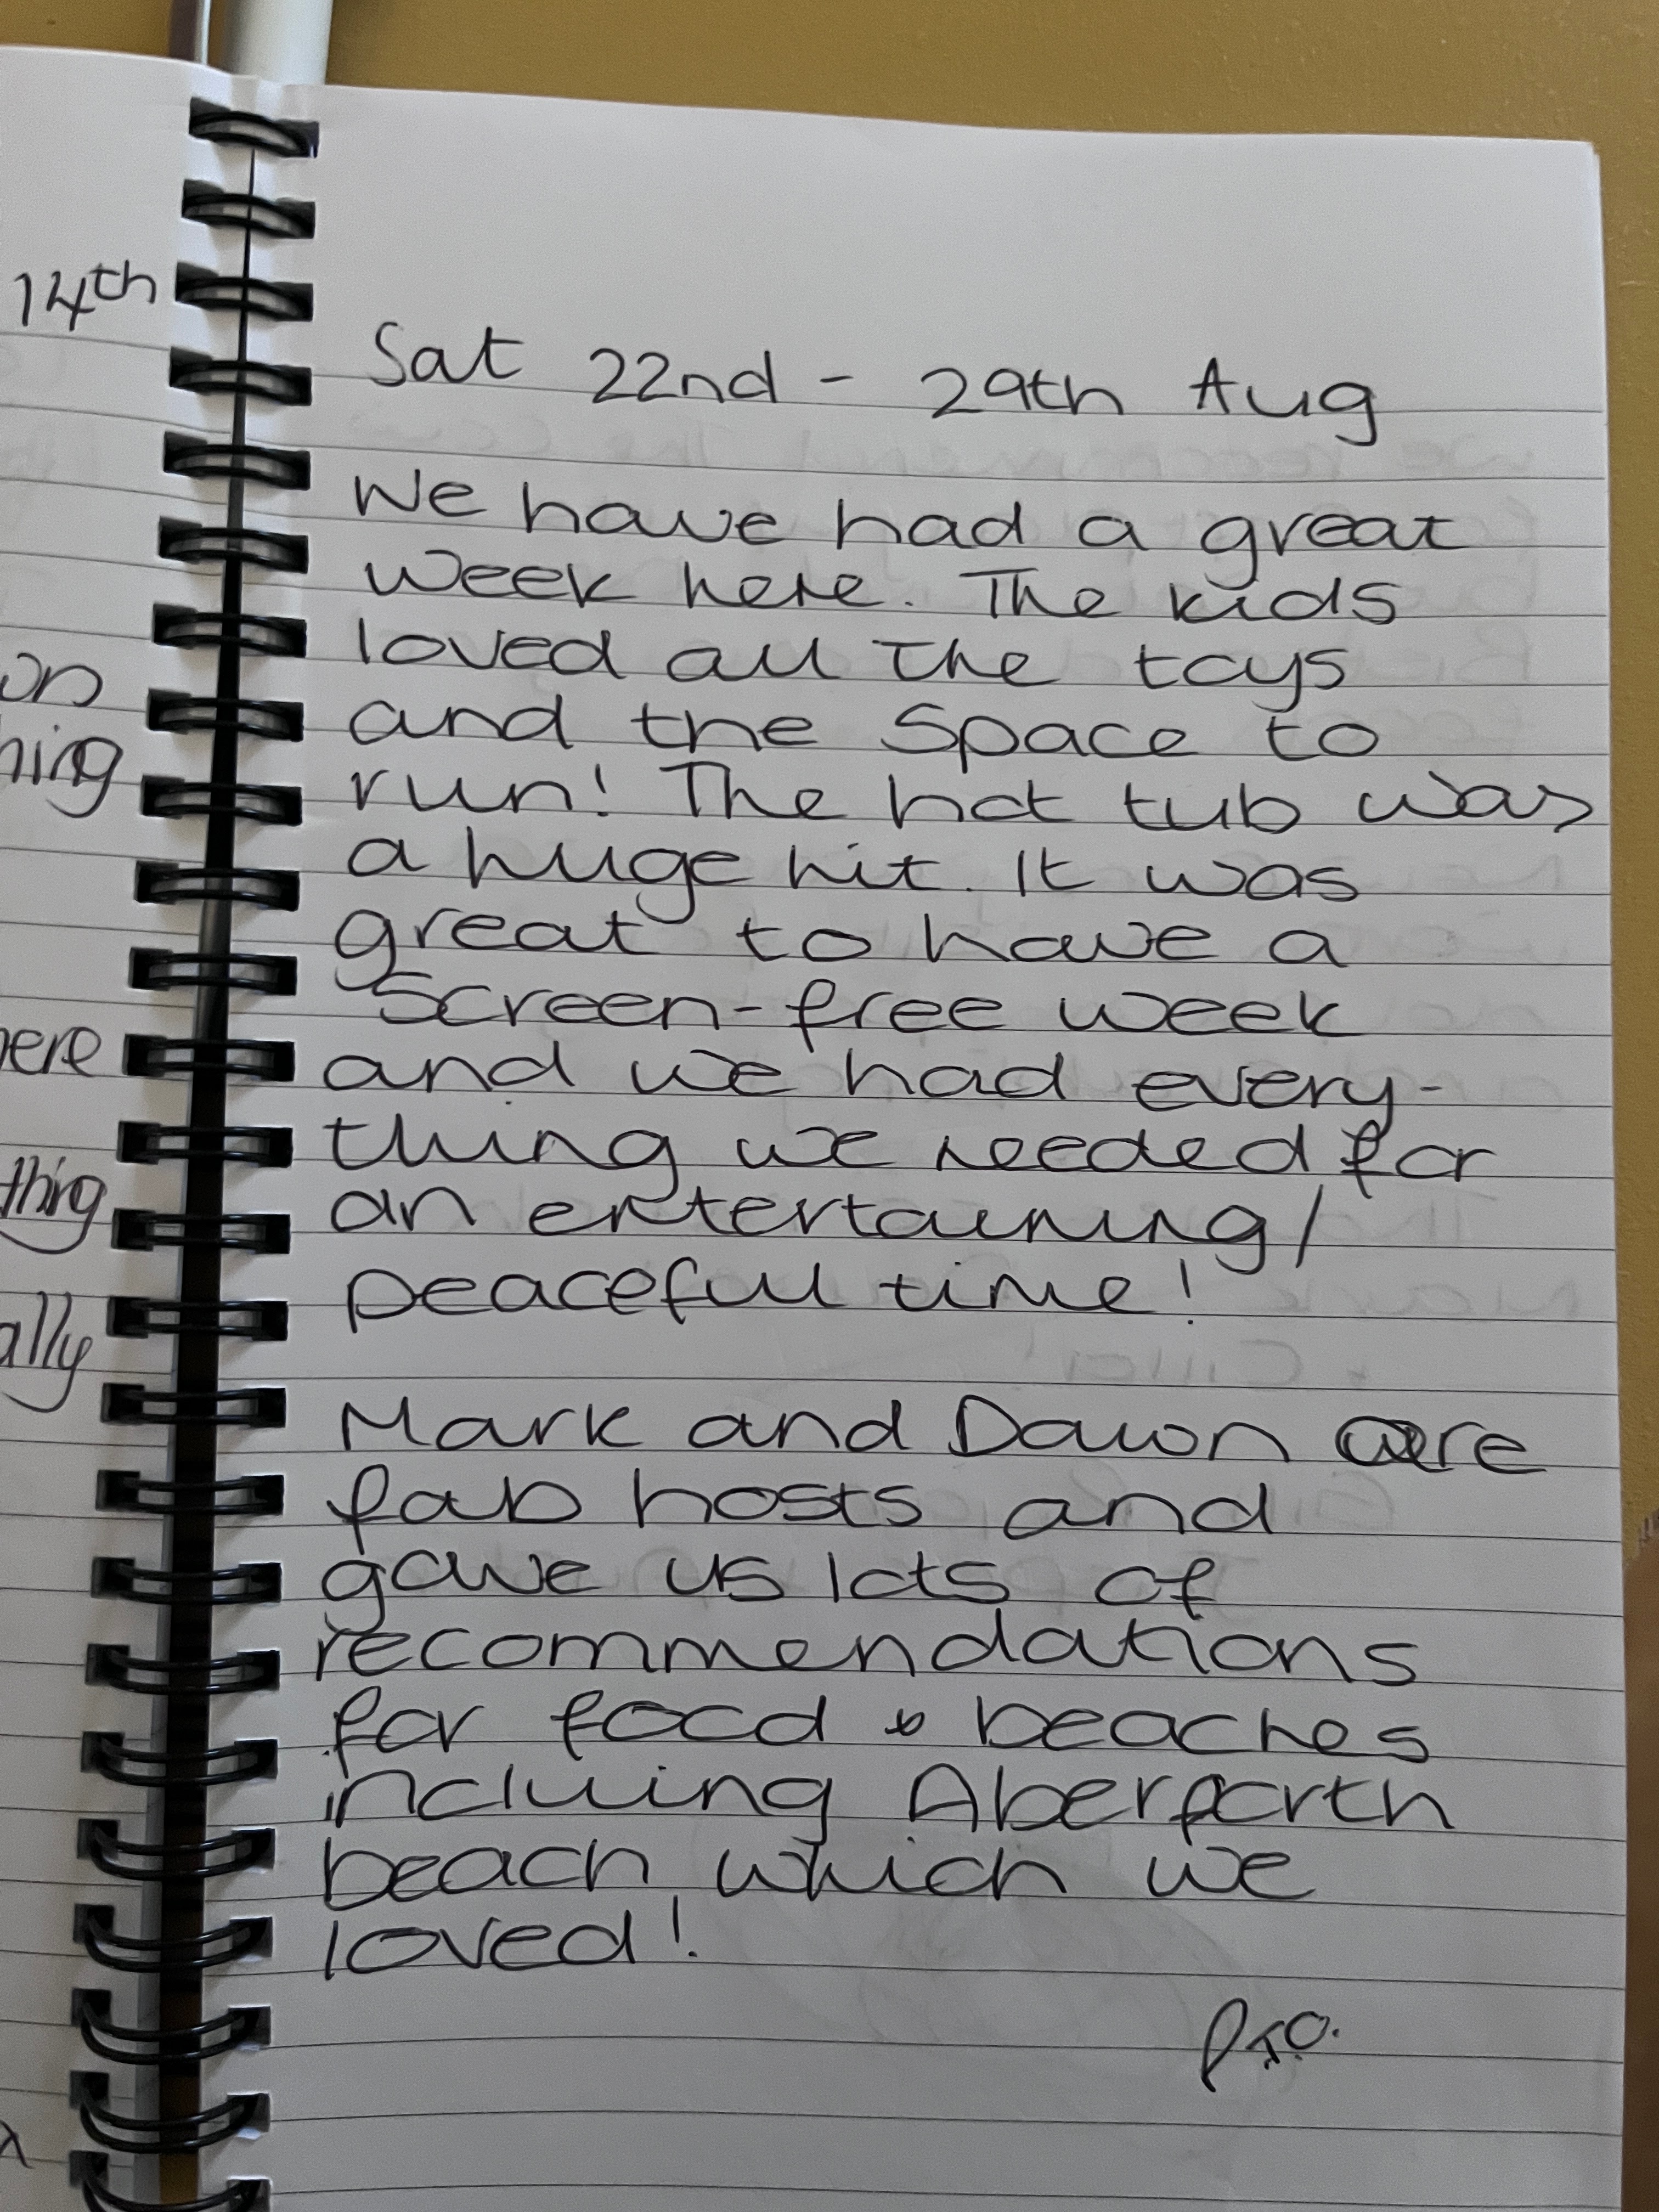 14th
Sat 22nd - 29th Aug
We have had a great
week here. The kids
loved all the toys
and the space to
run! The hot tub was
a huge hit. It was
great to have a
screen-free week
and we had every-
thing we needed for
an entertaining/
peaceful time!
Mark and Dawn are
fab hosts and
gave us lots of
recommendations
for food & beaches
incluing Aberporth
beach which we
loved!
P.T.O.
on
hing
here
thing
ally
x